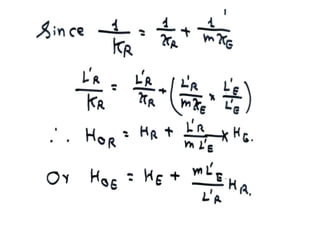 Since 1/K_R = 1/x_R + 1/mx_G
L'_R/K_R = L'_R/x_R + (L'_R/mx_E × L'_E/L'_E)
∴ H_OR = H_R + L'_R/mL'_E × H_G.
Or H_OE = H_E + mL'_E/L'_R H_R.